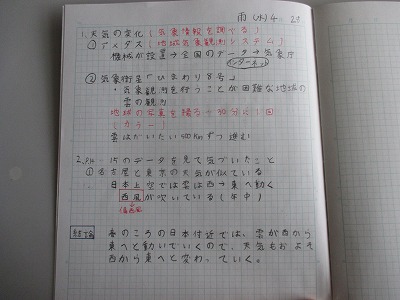 雨 (水) 4 2さ
1. 天気の変化 (気象情報を調べる)
① アメダス (地域気象観測システム)
機械が設置→全国のデータ→気象庁
インターネット
② 気象衛星「ひまわり8号」
・気象観測を行うことが困難な地域の
雲の観測
地球の写真を撮る→30分に1回
(カラー)
雲はだいたい 40kmずつ進む
2. P14〜15のデータを見て気づいたこと
① 名古屋と東京の天気が似ている
日本上空では雲は西→東へ動く
西風が吹いている (年中)
偏西風
結論
春のころの日本付近では、雲が西から
東へと動いていくので、天気もおよそ
西から東へと変わっていく。